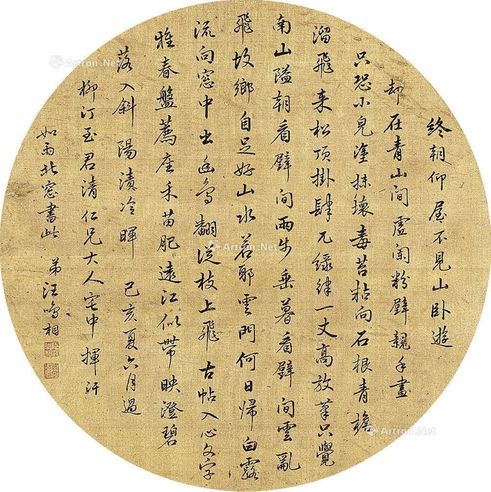 終朝仰屋不見山卧遊
却在青山間虛閣粉壁親手畫
只恐小兒塗抹壞毒苔粘向石根青檐
溜飛来松頂掛一丈高放筆只覺
南山隘朝看壁間雨垂暮看壁間雲亂
飛故鄉自足好山水若耶雲門何日歸白露
流向窓中出幽鳥翩從枝上飛 古帖入心文字
雅春盤薦座禾苗肥遠江似帶映澄碧
落入斜陽漬冷暉 己亥夏六月過
柳汀玉君清仁兄大人宅中揮汗
如雨北窓書此 弟汪鳴相
Artron.Net
Artron.Net
Artron.Net
Artron.Net